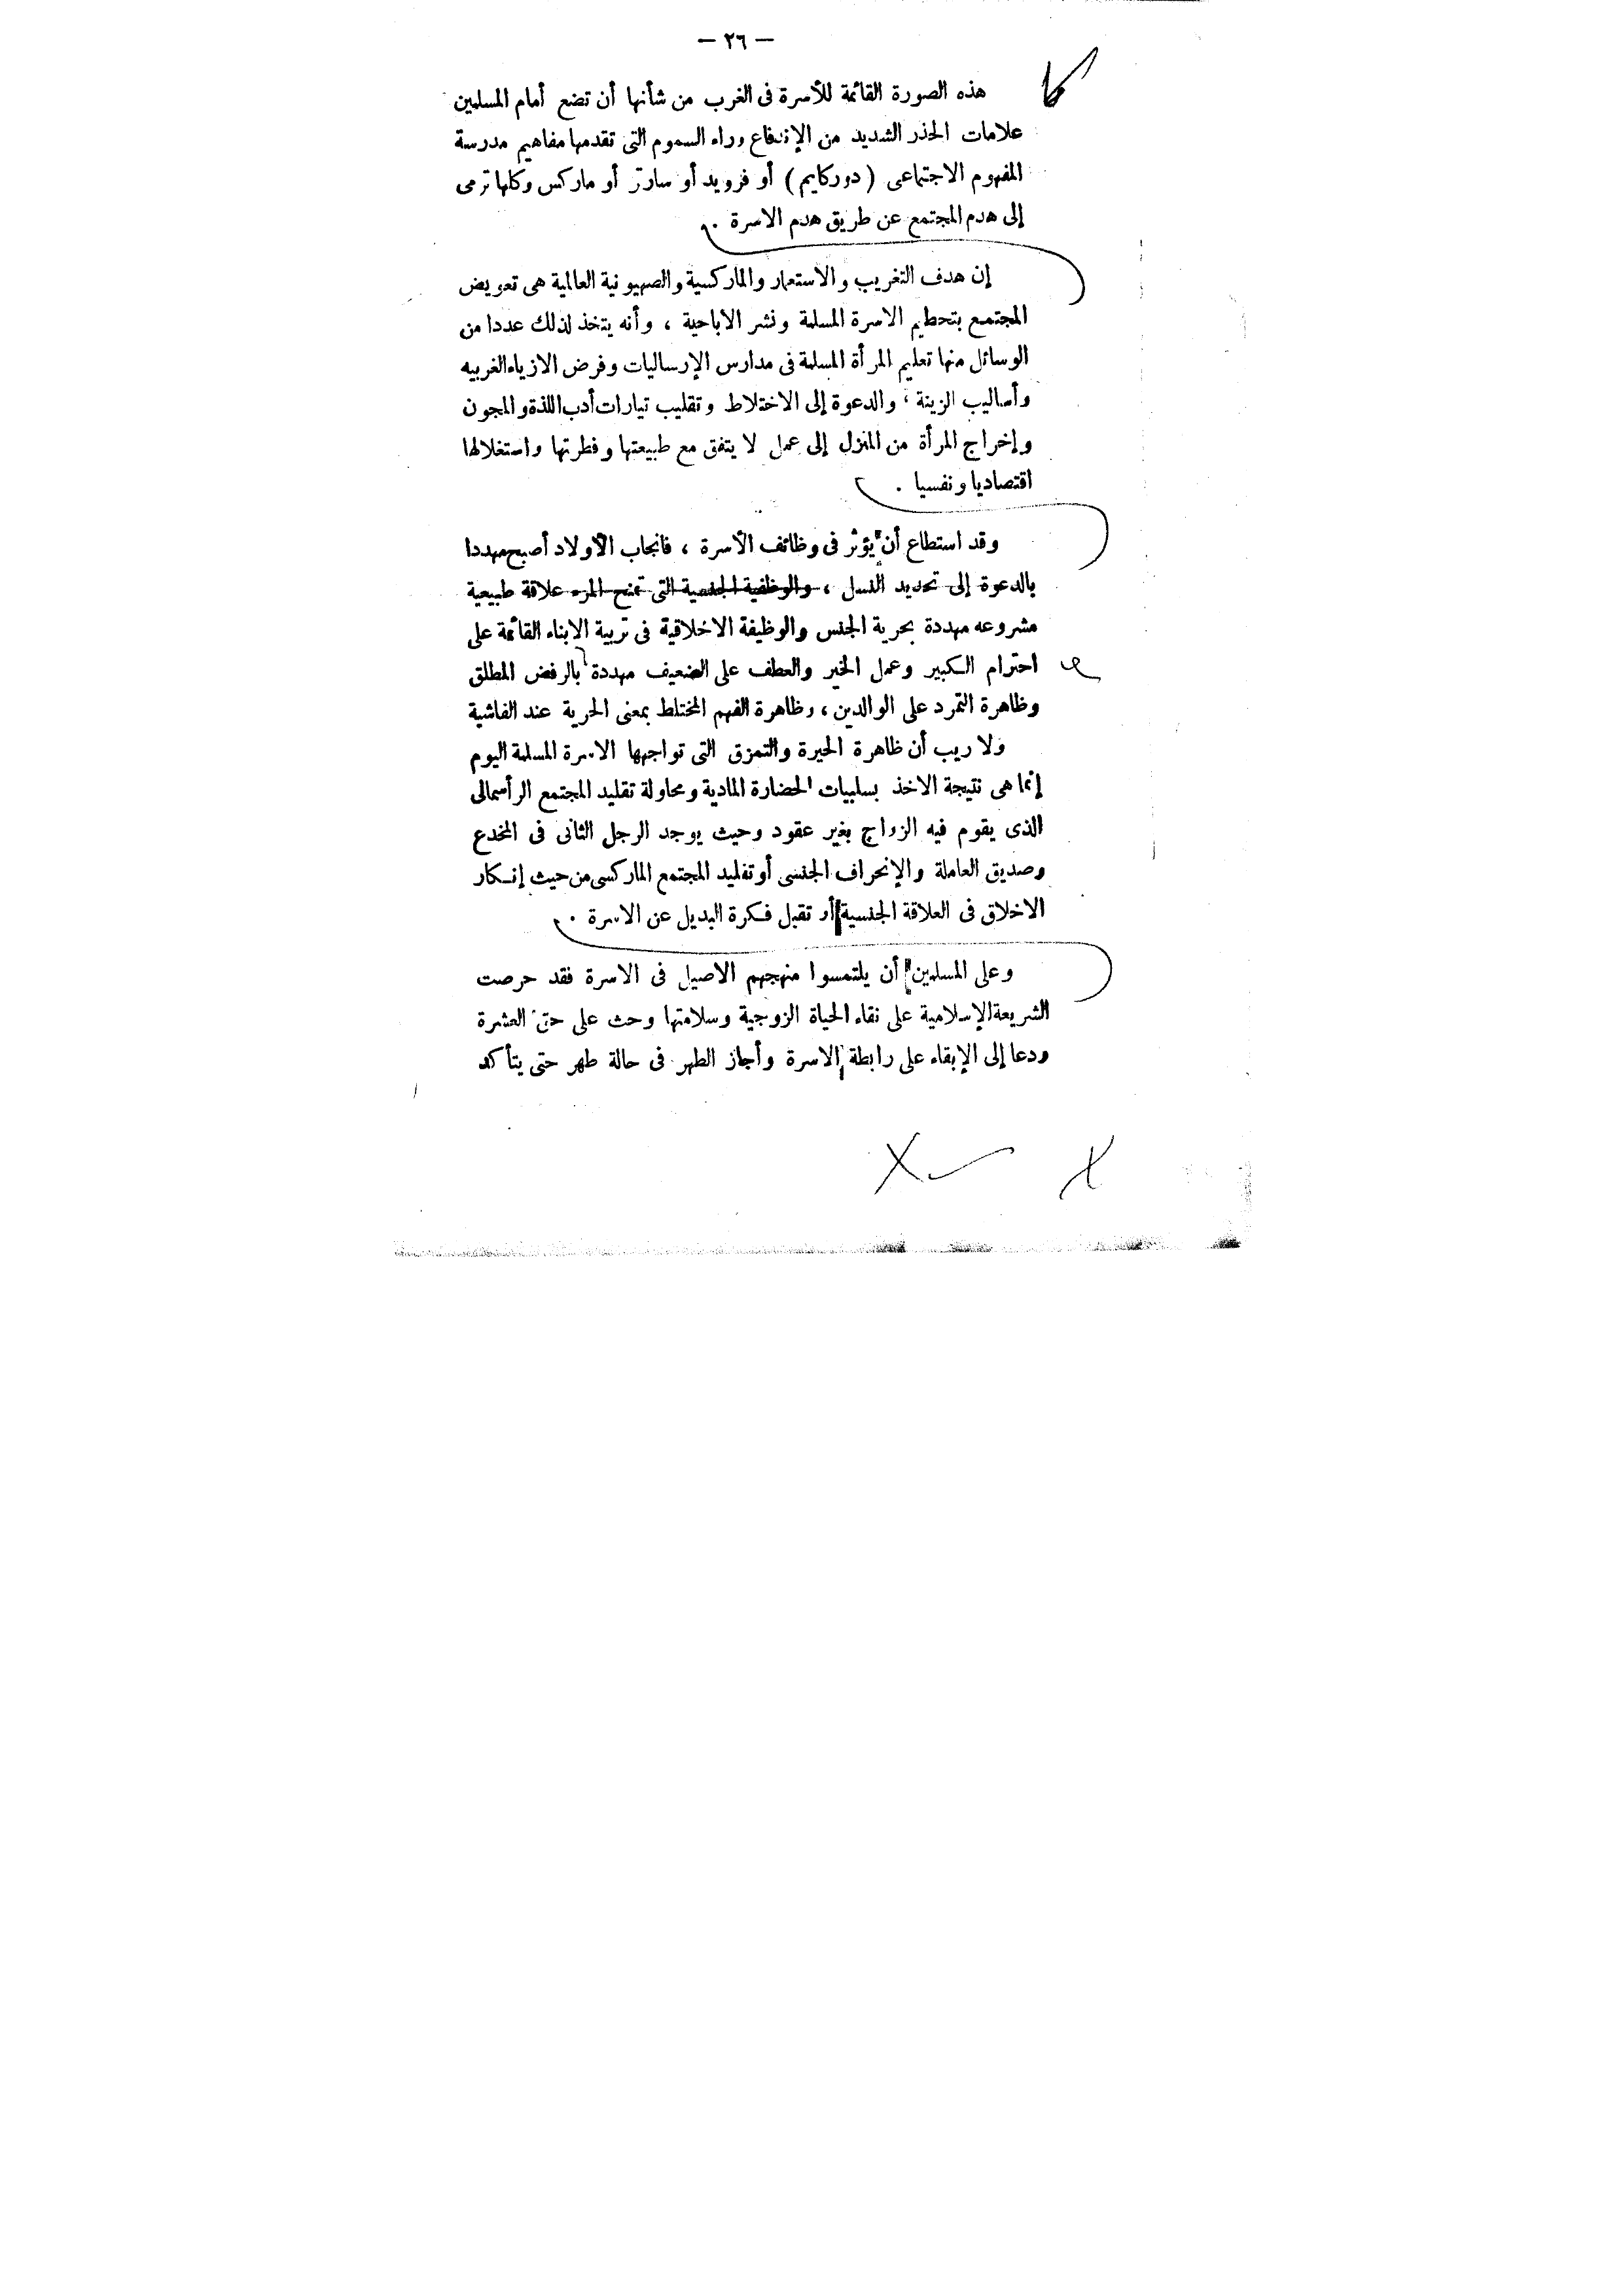 — ٢٦ —
هذه الصورة القائمة للأسرة فى الغرب من شأنها أن تضع أمام المسلمين
علامات الحذر الشديد من الإندفاع وراء السموم التى تقدمها مفاهيم مدرسة
المفهوم الاجتماعى (دوركايم) أو فرويد أو سارتر أو ماركس وكلها ترمى
إلى هدم المجتمع عن طريق هدم الاسرة .
إن هدف التغريب والاستعمار والماركسية والصهيونية العالمية هى تعويض
المجتمع بتحطيم الاسرة المسلمة ونشر الاباحية ، وأنه يتخذ لذلك عددا من
الوسائل منها تعليم المرأة المسلمة فى مدارس الإرساليات وفرض الازياء الغربيه
وأساليب الزينة ، والدعوة إلى الاختلاط وتقليب تيارات أدب اللذة والمجون
وإخراج المرأة من المنزل إلى عمل لا يتفق مع طبيعتها وفطرتها واستغلالها
اقتصاديا ونفسيا .
وقد استطاع أن يؤثر فى وظائف الأسرة ، فانجاب الأولاد أصبح مهددا
بالدعوة إلى تحديد النسل ، والوظفية الجنسية التى تمنح المرء علاقة طبيعية
مشروعه مهددة بحرية الجنس والوظيفة الاخلاقية فى تربية الابناء القائمة على
احترام الكبير وعمل الخير والعطف على الضعيف مهددة بالرفض المطلق
وظاهرة التمرد على الوالدين ، وظاهرة الفهم المختلط بمعنى الحرية عند الفاشية
ولا ريب أن ظاهرة الحيرة والتمزق التى تواجهها الاسرة المسلمة اليوم
إنما هى نتيجة الاخذ بسلبيات الحضارة المادية ومحاولة تقليد المجتمع الرأسمالى
الذى يقوم فيه الزواج بغير عقود وحيث يوجد الرجل الثانى فى المخدع
وصديق العاملة والإنحراف الجنسى أو تقليد المجتمع الماركسى من حيث إنكار
الاخلاق فى العلاقة الجنسية أو تقبل فكرة البديل عن الاسرة .
وعلى المسلمين أن يلتمسوا منهجهم الاصيل فى الاسرة فقد حرصت
الشريعة الإسلامية على نقاء الحياة الزوجية وسلامتها وحث على حق العشرة
ودعا إلى الإبقاء على رابطة الاسرة وأجاز الطهر فى حالة طهر حتى يتأكد